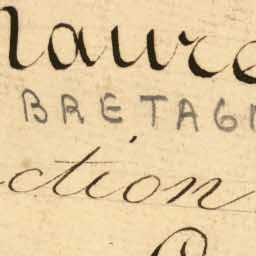 Naure
BRETAGN
ction